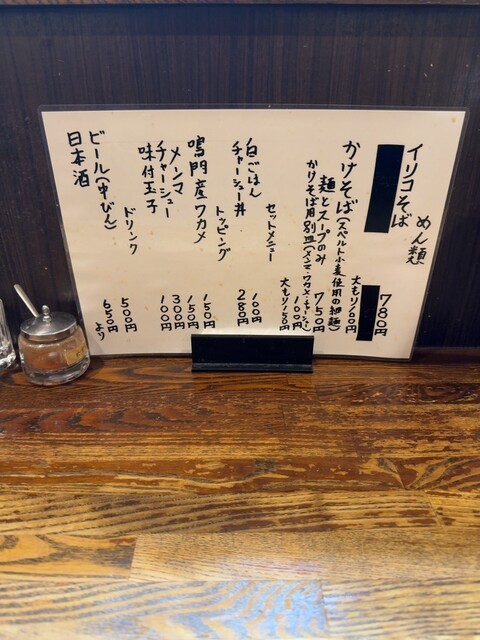 めん類
イリコそば 780円
大もり/60円
かけそば(スペルト小麦使用の細麺)
麺とスープのみ 750円
かけそば用別皿(メンマ・ワカメ・チャーシュー) 100円
大もり/150円
セットメニュー
白ごはん 100円
チャーシュー丼 280円
トッピング
鳴門産ワカメ 150円
メンマ 150円
チャーシュー 300円
味付玉子 100円
ドリンク
ビール(中びん) 500円
日本酒 650円より